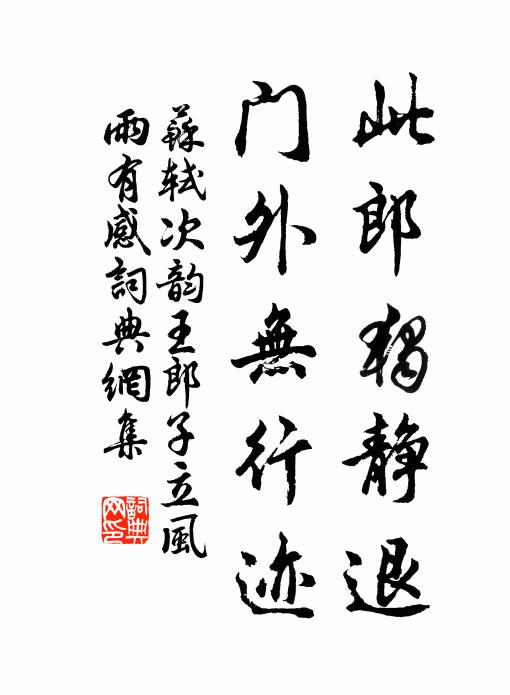 此郎独静退
门外無行迹
蘇軾次韵王郎子立風
雨有感詞典網集
詞典
网印